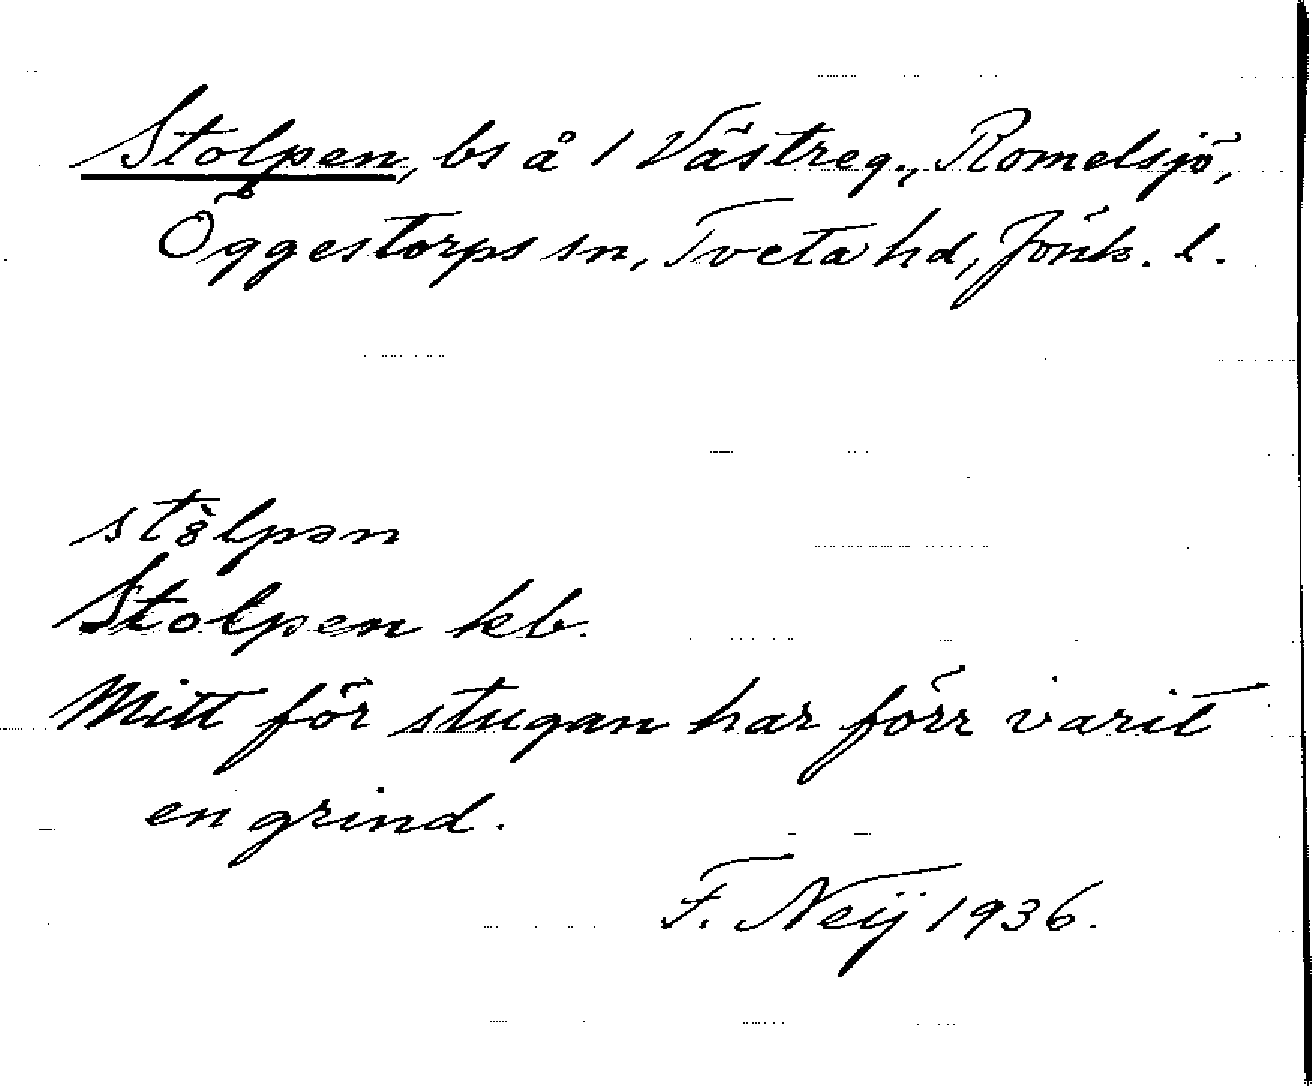 Stolpen, bs å 1 Västreg., Romelsjö,
Öggestorps sn, Tveta hd, Jönk. l.
stòlpən
Stolpen kb.
Mitt för stugan har förr varit
en grind.
F. Neij 1936.